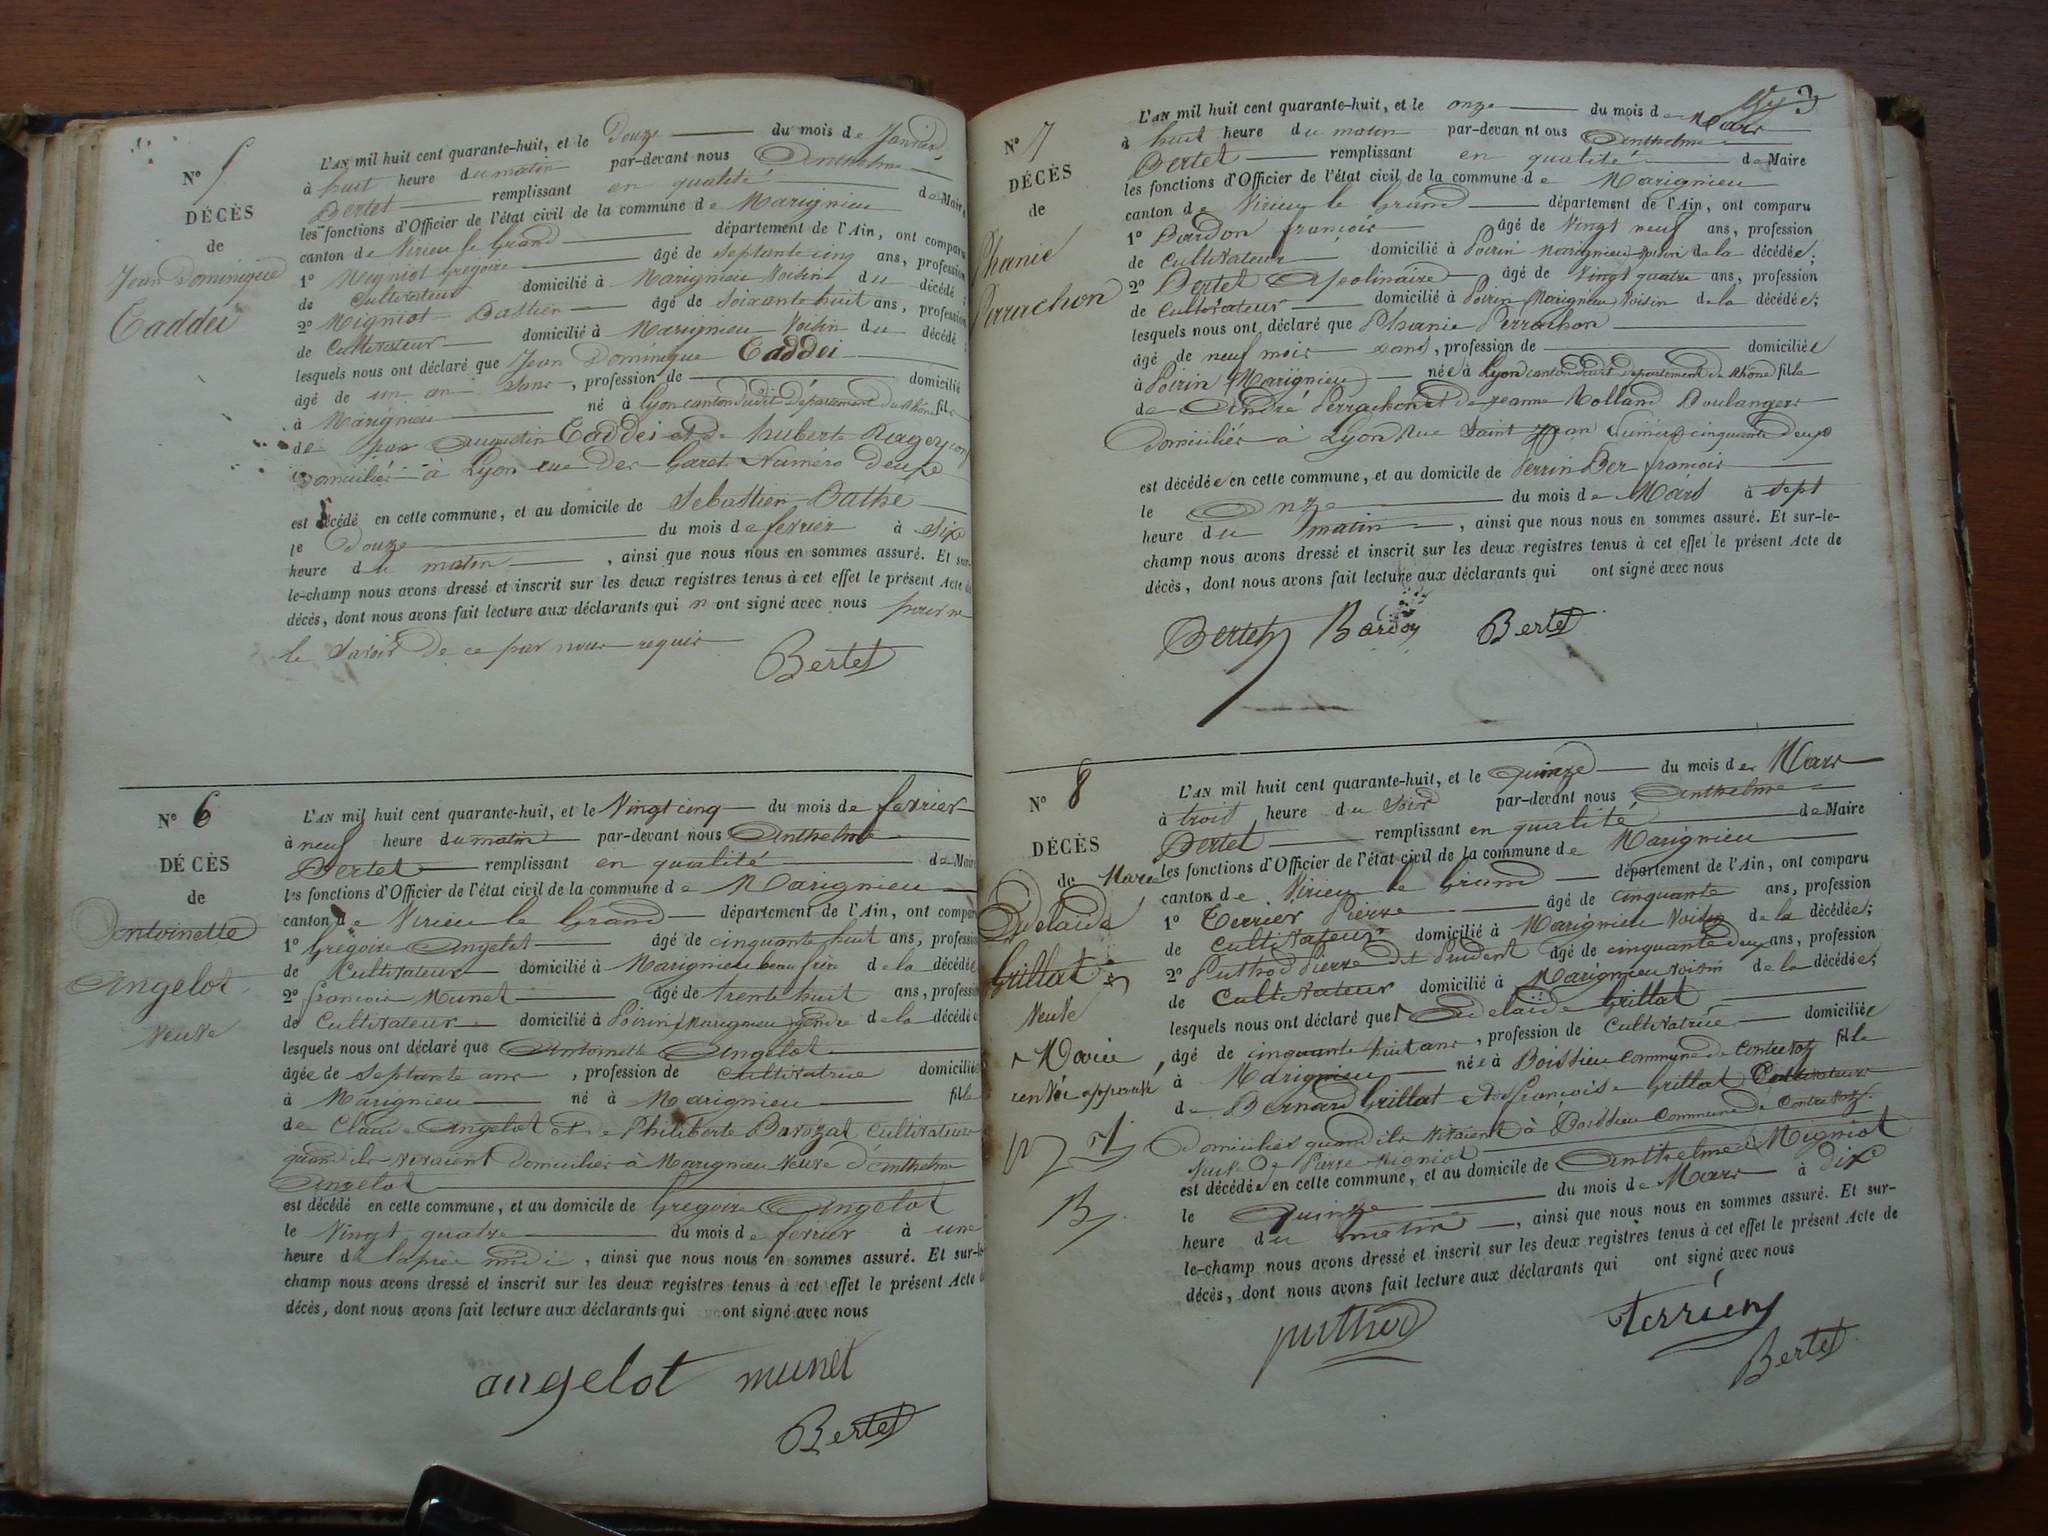 N° 5
DÉCÈS
de
Jean Dominique
Taddei
L'AN mil huit cent quarante-huit, et le Douze du mois de Janvier
à huit heure du matin par-devant nous Anthelme
Bertet remplissant en qualité de Maire
les fonctions d'Officier de l'état civil de la commune de Marignieu
canton de Virieu le Grand département de l'Ain, ont comparu
1° Migniot Gregoire âgé de septante cinq ans, profession
de Cultivateur domicilié à Marignieu Voisin du décédé;
2° Migniot Bastien âgé de soixante huit ans, profession
de Cultivateur domicilié à Marignieu Voisin du décédé;
lesquels nous ont déclaré que Jean Dominique Taddei
âgé de un an , profession de domicilié
à Marignieu né à Lyon canton dudit Département du Rhône fils
de Jean Augustin Taddei et de huberte
Domiciliés à Lyon rue des Numéro Deuxe
est décédé en cette commune, et au domicile de Sebastien Bathe
le Douze du mois de fevrier à Sixe
heure du matin , ainsi que nous nous en sommes assuré. Et sur-
le-champ nous avons dressé et inscrit sur les deux registres tenus à cet effet le présent Acte de
décès, dont nous avons fait lecture aux déclarants qui n ont signé avec nous pour ne
le savoir de ce par nous requis
Bertet
N° 6
DÉCÈS
de
Antoinette
Angelot
Veuve
L'AN mil huit cent quarante-huit, et le Vingt cinq du mois de fevrier
à neuf heure du matin par-devant nous Anthelme
Bertet remplissant en qualité de Maire
les fonctions d'Officier de l'état civil de la commune de Marignieu
canton de Virieu le Grand département de l'Ain, ont comparu
1° Grégoire Angelot âgé de cinquante huit ans, profession
de Cultivateur domicilié à Marignieu beau frère de la décédée
2° françois Munet âgé de trente huit ans, profession
de Cultivateur domicilié à Poirin (Marignieu) gendre de la décédée
lesquels nous ont déclaré que Antoinette Angelot
âgée de septante ans , profession de cultivatrice domiciliée
à Marignieu né à Marignieu fille
de Claude Angelot et de Philiberte Barozat Cultivateurs
quand ils vivaient Domiciliés à Marignieu Veuve d'Anthelme
Angelot
est décédé en cette commune, et au domicile de Gregoire Angelot
le Vingt quatre du mois de fevrier à une
heure de lapres midi , ainsi que nous nous en sommes assuré. Et sur-le-
champ nous avons dressé et inscrit sur les deux registres tenus à cet effet le présent Acte de
décès, dont nous avons fait lecture aux déclarants qui ont signé avec nous
angelot munet
Bertet
3
N° 7
DÉCÈS
de
Phanie
Perrachon
L'AN mil huit cent quarante-huit, et le onze du mois de Mars
à huit heure du matin par-devan nt ous Anthelme
Bertet remplissant en qualité de Maire
les fonctions d'Officier de l'état civil de la commune de Marignieu
canton de Virieu le Grand département de l'Ain, ont comparu
1° Bardon françois âgé de Vingt neuf ans, profession
de Cultivateur domicilié à Poirin Marignieu Voisin de la décédée;
2° Bertet Apolinaire âgé de Vingt quatre ans, profession
de Cultivateur domicilié à Poirin Marignieu Voisin de la décédée;
lesquels nous ont déclaré que Phanie Perrachon
âgé de neuf mois , profession de domiciliée
à Poirin (Marignieu) née à Lyon canton dudit département du Rhône fille
de André Perrachon et de Jeanne Rolland Boulangers
Domiciliés à Lyon Rue Saint Jean Numéro cinquante deux
est décédée en cette commune, et au domicile de Perrin Ber françois
le Onze du mois de Mars à sept
heure du matin , ainsi que nous nous en sommes assuré. Et sur-le-
champ nous avons dressé et inscrit sur les deux registres tenus à cet effet le présent Acte de
décès, dont nous avons fait lecture aux déclarants qui ont signé avec nous
Bertet Bardon Bertet
N° 8
DÉCÈS
de Marie
Adelaïde
Grillat
Veuve
Marie
renvoi approuvé
B
L'AN mil huit cent quarante-huit, et le quinze du mois de Mars
à trois heure du Soir par-devant nous Anthelme
Bertet remplissant en qualité de Maire
les fonctions d'Officier de l'état civil de la commune de Marignieu
canton de Virieu le Grand département de l'Ain, ont comparu
1° Terrier Pierre âgé de cinquante ans, profession
de Cultivateur domicilié à Marignieu Voisin de la décédée;
2° Puthod Pierre dit Prudent âgé de cinquante deux ans, profession
de Cultivateur domicilié à Marignieu Voisin de la décédée;
lesquels nous ont déclaré que Adelaïde Grillat
âgé de cinquante huit ans , profession de Cultivatrice domiciliée
à Marignieu née à Boissieu Commune de Contrevoz fille
de Bernard Grillat et de françoise Grillat Cultivateurs
Domiciliés quand ils vivaient à Boissieu Commune de Contrevoz
Veuve de Pierre Migniot
est décédée en cette commune, et au domicile de Anthelme Migniot
le Quinze du mois de Mars à dix
heure du matin , ainsi que nous nous en sommes assuré. Et sur-
le-champ nous avons dressé et inscrit sur les deux registres tenus à cet effet le présent Acte de
décès, dont nous avons fait lecture aux déclarants qui ont signé avec nous
puthod terrier
Bertet